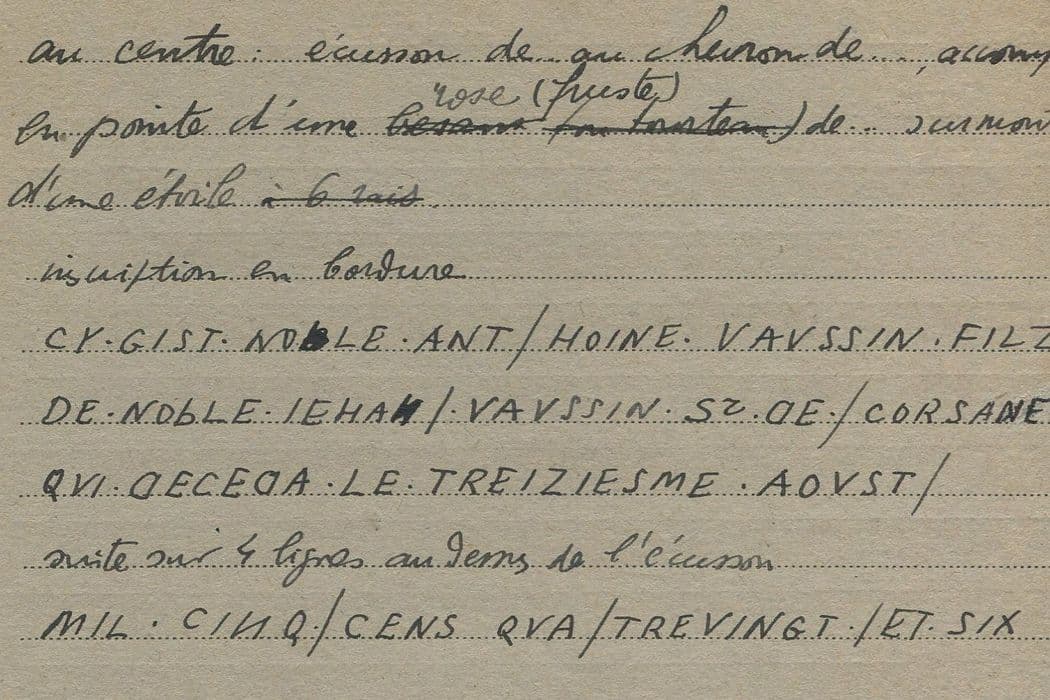 au centre: écusson de au chevron de... , accomp
rose (fruste)
en pointe d'une besant (ou tourteau) de.. surmont
d'une étoile à 6 rais.
inscription en bordure
CY·GIST·NObLE·ANT/HOINE·VAVSSIN·FILZ
DE·NObLE·IEHAN/·VAVSSIN·Sr·DE·/CORSANE
QVI·DECEDA·LE·TREIZIESME·AOVST/
suite sur 4 lignes au dessus de l'écusson
MIL·CINQ/CENS QVA/TREVINGT·/ET·SIX